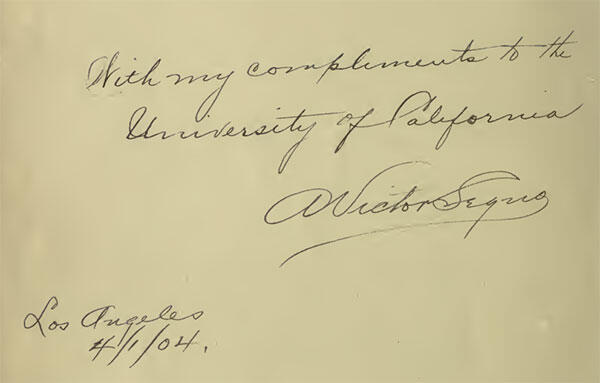 With my compliments to the
University of California
A Victor Segno
Los Angeles
4/1/04.